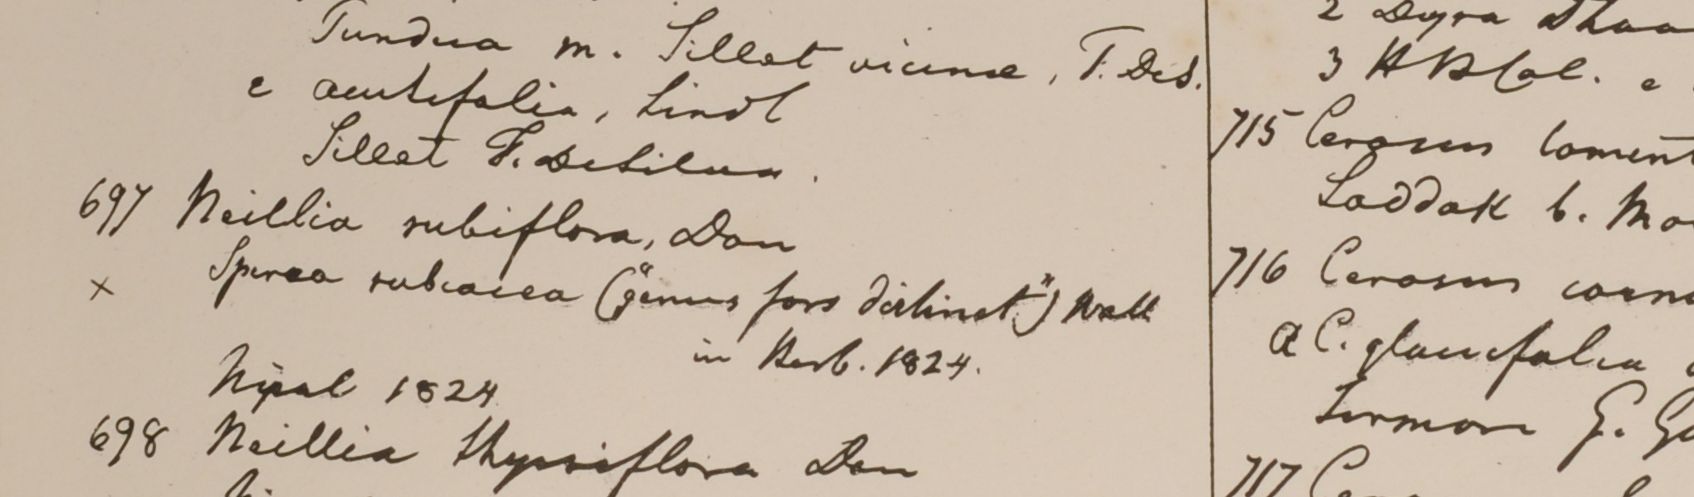 Tundua m. Sillet vicinae, F. DeS.
c acutifolia, Lindl
Sillet F. De Silva.
697 Neillia rubiflora, Don
× Spiraea rubacea ("genus fors distinct") Wall
in Herb. 1824.
Nipal 1824
698 Neillia thyrsiflora Don
2 Dyra
3 HBCal. c
715 Cerasus toment
Laddak b. Mo
716 Cerasus
a C. glaucifolia
Sirmore G. Go
717 Ce